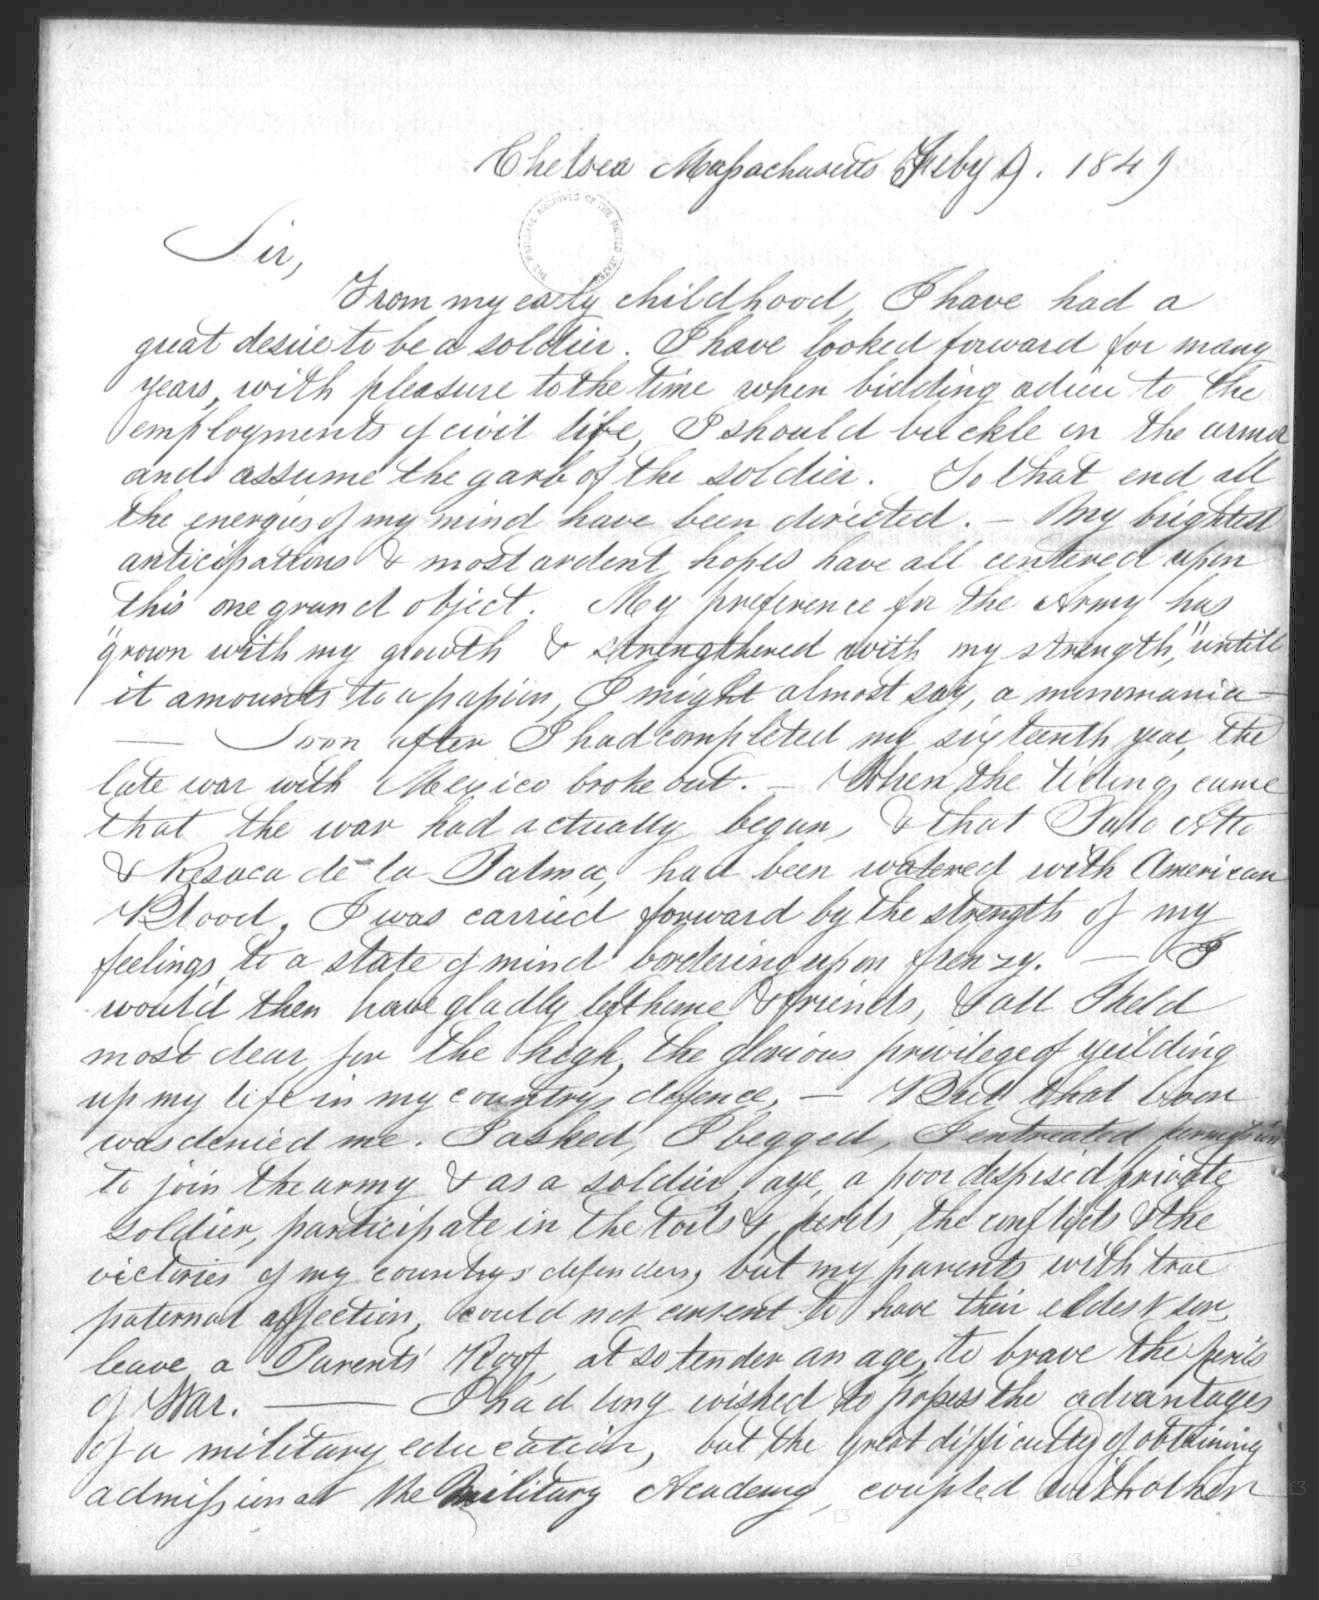 Chelsea Massachusetts Feby 9. 1849
THE NATIONAL ARCHIVES OF THE UNITED STATES
Sir,
From my early childhood, I have had a
great desire to be a soldier. I have looked forward for many
years, with pleasure to the time when bidding adieu to the
employments of civil life, I should buckle on the armor
and assume the garb of the soldier. To that end all
the energies of my mind have been directed. — My brightest
anticipations & most ardent hopes have all centered upon
this one grand object. My preference for the Army has
"grown with my growth & strengthened with my strength," untill
it amounts to a passion, I might almost say, a monomania —
— Soon after I had completed my sixteenth year, the
late war with Mexico broke out. — When the tidings came
that the war had actually begun, & that Palo Alto
& Resaca de la Palma, had been watered with American
Blood, I was carried forward by the strength of my
feelings to a state of mind bordering upon frenzy. — I
would then have gladly left home & friends, & all I held
most dear, for the high, the glorious privilege of yeilding
up my life in my country's defence. — But that boon
was denied me. I asked, I begged, I entreated permission
to join the army & as a soldier, aye, a poor despised private
soldier, participate in the toils & perils, the conflicts & the
victories of my country's defenders, but my parents with true
paternal affection, could not consent to have their eldest son,
leave a Parents' Roof, at so tender an age, to brave the perils
of War. — I had long wished to possess the advantages
of a military education, but the great difficulty of obtaining
admission at the Military Academy, coupled with other